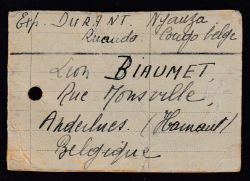 Exp. DURANT. Nyanza
Ruanda. Congo belge
Léon BIAUMET,
Rue Monsville
Anderlues. (Hainaut)
Belgique